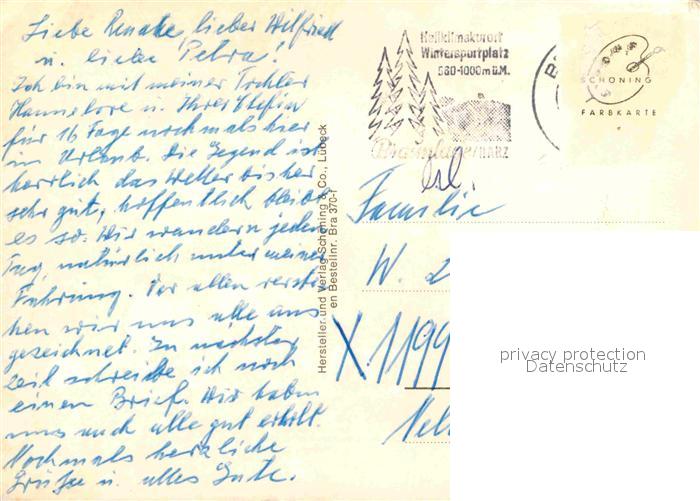 Liebe Renate, lieber Wilfried
u. liebe Petra!
Ich bin mit meiner Tochter
Hannelore u. Ihrer Chefin
für 16 Tage nochmals hier
im Urlaub. Die Gegend ist
herrlich das Wetter bisher
sehr gut, hoffentlich bleibt
es so. Wir wandern jeden
Tag, natürlich unter meiner
Führung. Vor allen verste-
hen wir uns alle aus
gezeichnet. In nächster
Zeit schreibe ich noch
einen Brief. Wir haben
uns auch alle gut erholt.
Nochmals herzliche
Grüße u. alles Gute.
Hersteller und Verlag Schöning & Co., Lübeck
en Bestellnr. Bra 370-r
Heilklimakurort
Wintersportplatz
560-1000m ü.M.
Braunlage/HARZ
SCHÖNING
FARBKARTE
Familie
W.
X 1199
privacy protection
Datenschutz